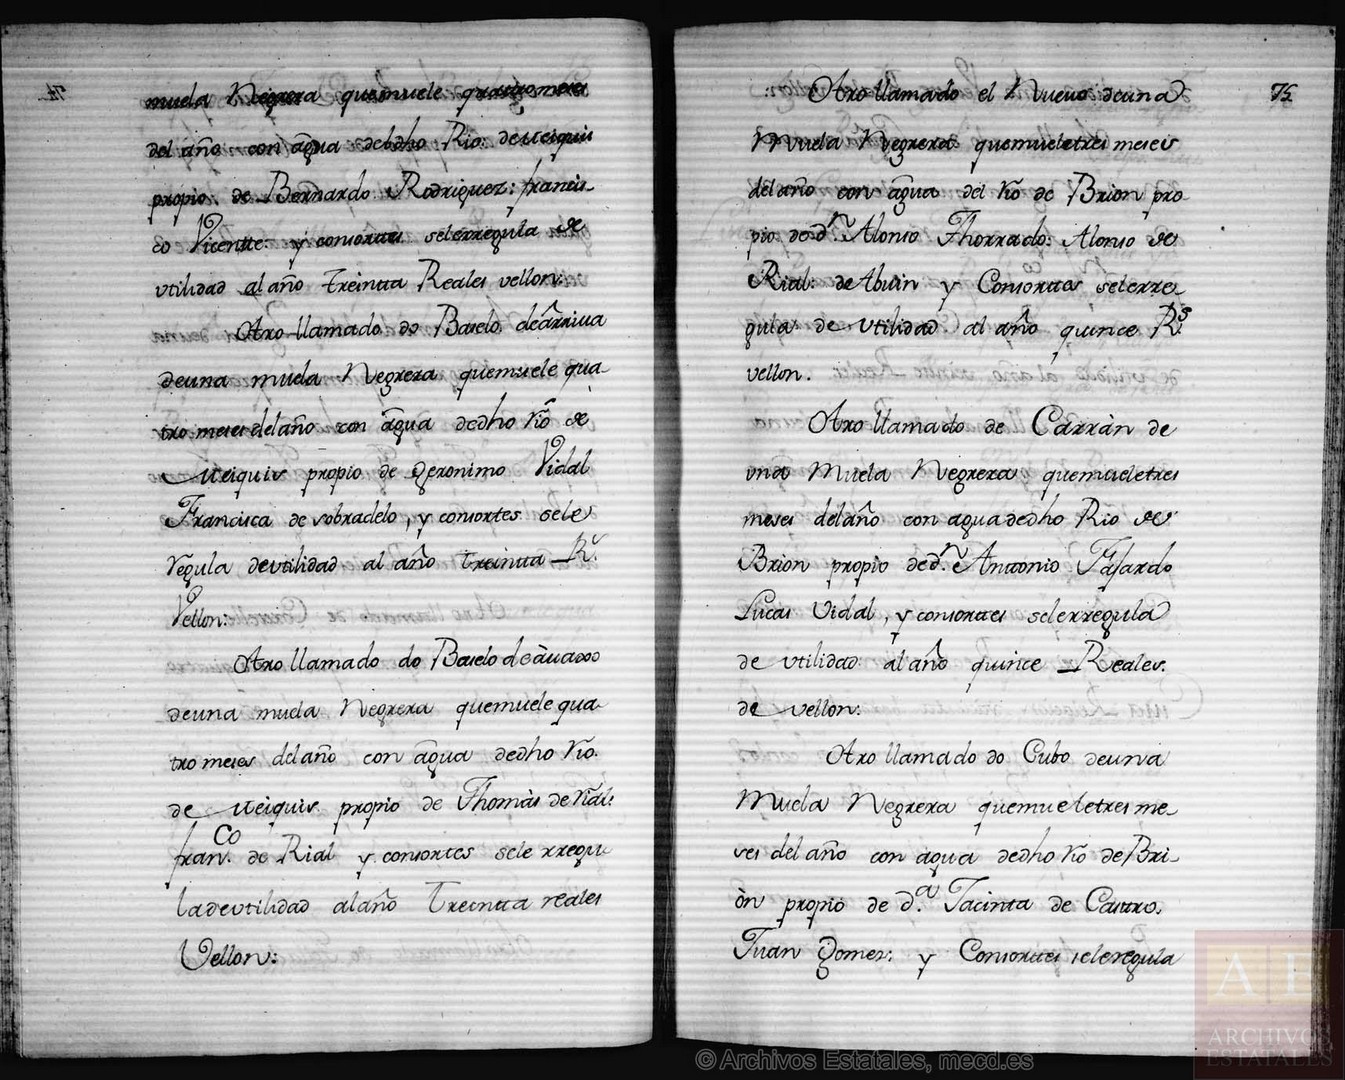 muela Negrera quemuele quatro meses
del año con agua dedho Rio: de ueiquis
propio. de Bernardo Rodriguez: francis-
co Vicentte y consortes selerregula de
vtilidad al año treintta Reales vellon:
Otro llamado do Baselo dearriua
deuna muela Negrera quemuele qua-
tro meses del año con agua dedho Rio de
ueiquis propio de Geronimo Vidal
Francisca de sobradelo, y consortes sele
rregula deutilidad al año treintta Rs.
Vellon:
Otro llamado do Baselo deàuaxo
deuna muela Negrera quemuele qua-
tro meses del año con agua dedho Rio.
de ueiquis propio de Thomàs de Rial:
fran.co de Rial y consortes sele rregu-
ladeutilidad alaño treintta reales
Vellon:
Otro llamado el Nuevo deuna 75
Muela Negrera quemueletres meses
del año con agua del Rio de Brion pro
pio de dn. Alonso Thorrado: Alonso de
Rial: de Abuin y Consortes selerre-
gula de vtilidad al año quince Rs
vellon.
Otro llamado de Carràn de
vna Muela Negrera quemueletres
meses del año con agua dedho Rio de
Brion propio dedn. Anttonio Fajardo
Lucas Vidal, y consortes selerregula
de vtilidad al año quince Reales.
de vellon:
Otro llamado do Cubo deuna
Muela Negrera quemueletres me-
ses del año con agua dedho Rio de Bri-
òn propio de d.a Jacinta de Castro.
Juan Gomez: y Consortes seleregula
© Archivos Estatales, mecd.es
A E
ARCHIVOS
ESTATALES